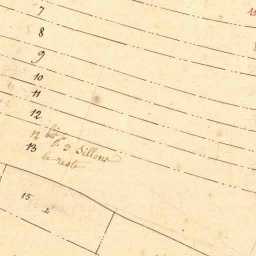 7
8
9
10
11
12
12
13
2 Sillons
le reste
15
2